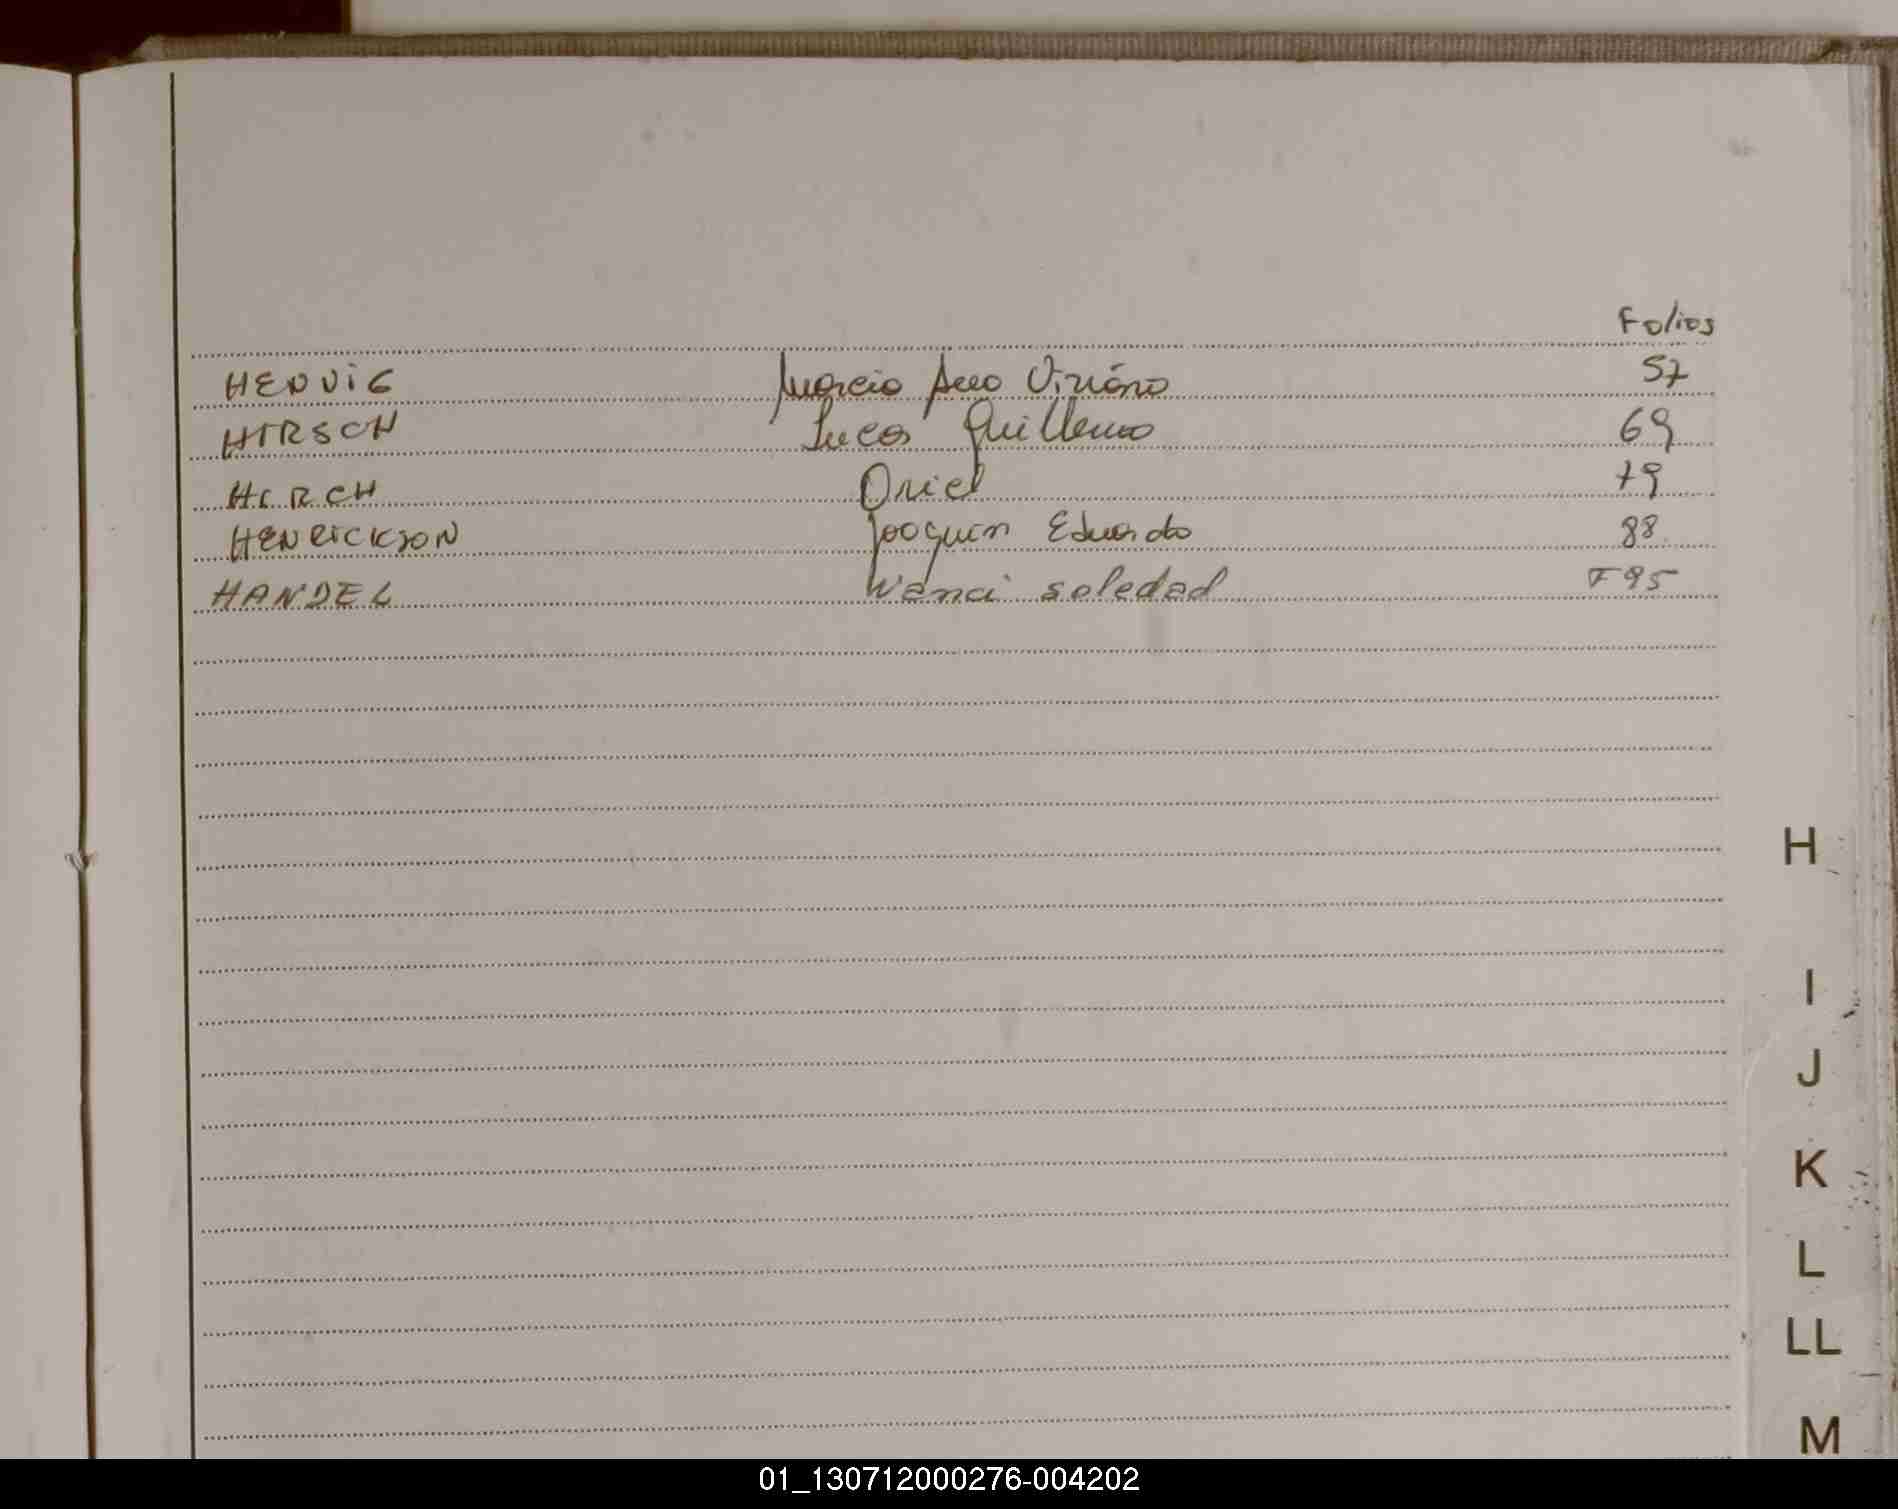 Folios
HENVIG Marcio Aleo 57
HIRSCH Lucas Guillermo 69
HIRCH Oriel 79
HENRICKSON Joaquin Eduardo 88
HANDEL Nanci soledad F 95
H
I
J
K
L
LL
M
01_130712000276-004202